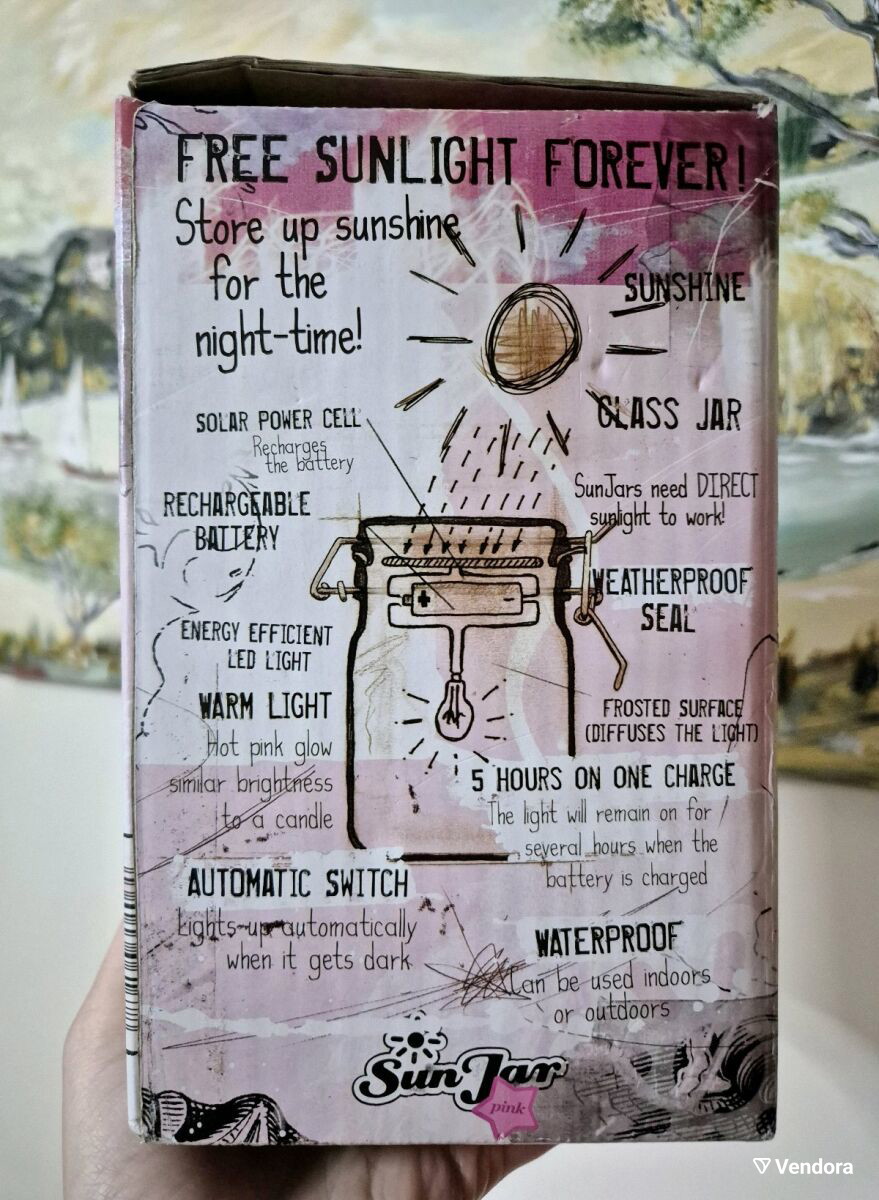 FREE SUNLIGHT FOREVER!
Store up sunshine
for the
night-time!
SUNSHINE
SOLAR POWER CELL
Recharges
the battery
GLASS JAR
RECHARGEABLE
BATTERY
SunJars need DIRECT
sunlight to work!
WEATHERPROOF
SEAL
+ -
ENERGY EFFICIENT
LED LIGHT
WARM LIGHT
Hot pink glow
similar brightness
to a candle
FROSTED SURFACE
(DIFFUSES THE LIGHT)
5 HOURS ON ONE CHARGE
The light will remain on for
several hours when the
battery is charged
AUTOMATIC SWITCH
Lights-up automatically
when it gets dark
WATERPROOF
Can be used indoors
or outdoors
Sun Jar
pink
Vendora